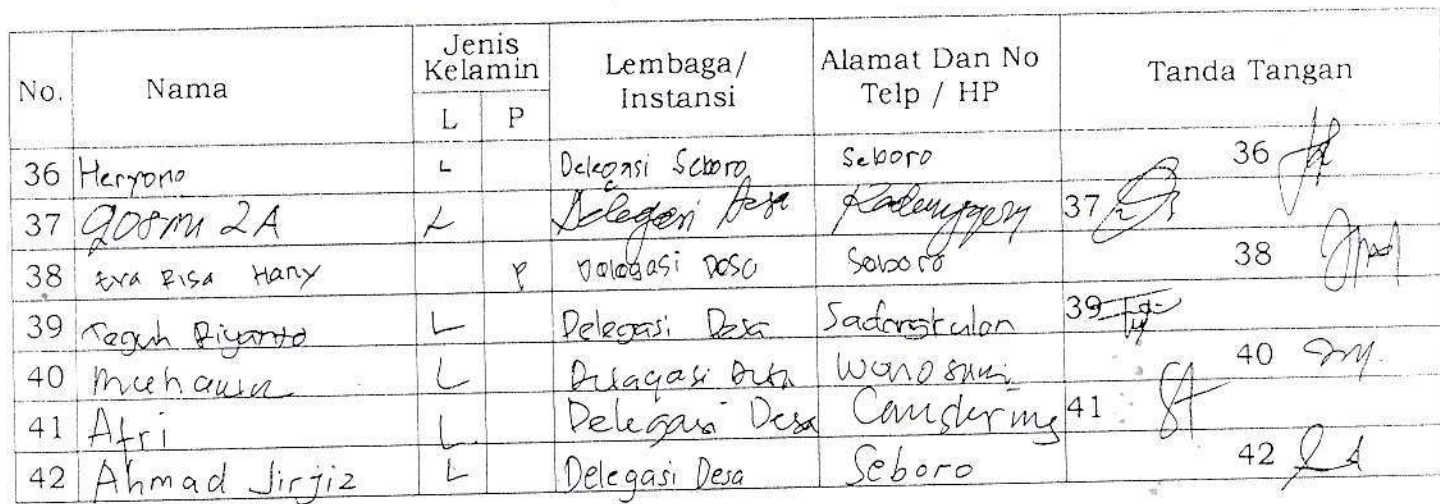 No. Nama Jenis Kelamin Lembaga/ Instansi Alamat Dan No Telp / HP Tanda Tangan
L P
36 Heryono L Delegasi Seboro Seboro 36
37 L Delegasi Desa 37
38 Eva Risa Hany P Delegasi Desa Seboro 38
39 Teguh Riyanto L Delegasi Desa Sadangkulon 39
40 L Delegasi Desa Wonosari 40
41 Afri L Delegasi Desa 41
42 Ahmad Jirjiz L Delegasi Desa Seboro 42